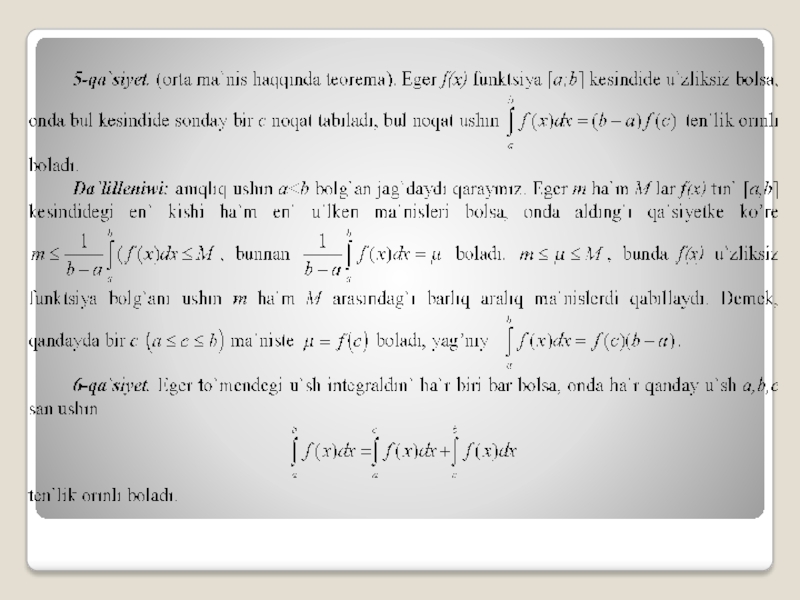 5-qa`siyet. (orta ma`nis haqqında teorema). Eger f(x) funktsiya [a;b] kesindide u`zliksiz bolsa,
onda bul kesindide sonday bir c noqat tabıladı, bul noqat ushın ∫_a^b f(x)dx = (b − a) f(c) ten`lik orınlı
boladı.
Da`lilleniwi: anıqlıq ushın a<b bolg`an jag`daydı qaraymız. Eger m ha`m M lar f(x) tın` [a,b]
kesindidegi en` kishi ha`m en` u`lken ma`nisleri bolsa, onda aldıng`ı qa`siyetke ko’re
m ≤ 1/(b − a) ∫_a^b (f(x)dx ≤ M , bunnan 1/(b − a) ∫_a^b f(x)dx = μ boladı. m ≤ μ ≤ M , bunda f(x) u`zliksiz
funktsiya bolg`anı ushın m ha`m M arasındag`ı barlıq aralıq ma`nislerdi qabıllaydı. Demek,
qandayda bir c (a ≤ c ≤ b) ma`niste μ = f(c) boladı, yag’nıy ∫_a^b f(x)dx = f(c)(b − a).
6-qa`siyet. Eger to`mendegi u`sh integraldın` ha`r biri bar bolsa, onda ha`r qanday u`sh a,b,c
san ushın
∫_a^b f(x)dx = ∫_a^c f(x)dx + ∫_c^b f(x)dx
ten`lik orınlı boladı.